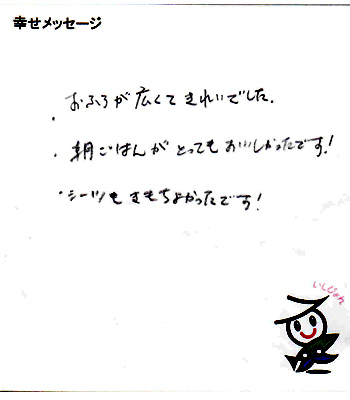 幸せメッセージ
・おふろが広くてきれいでした.
・朝ごはんがとってもおいしかったです!
・シーツもきもちよかったです!